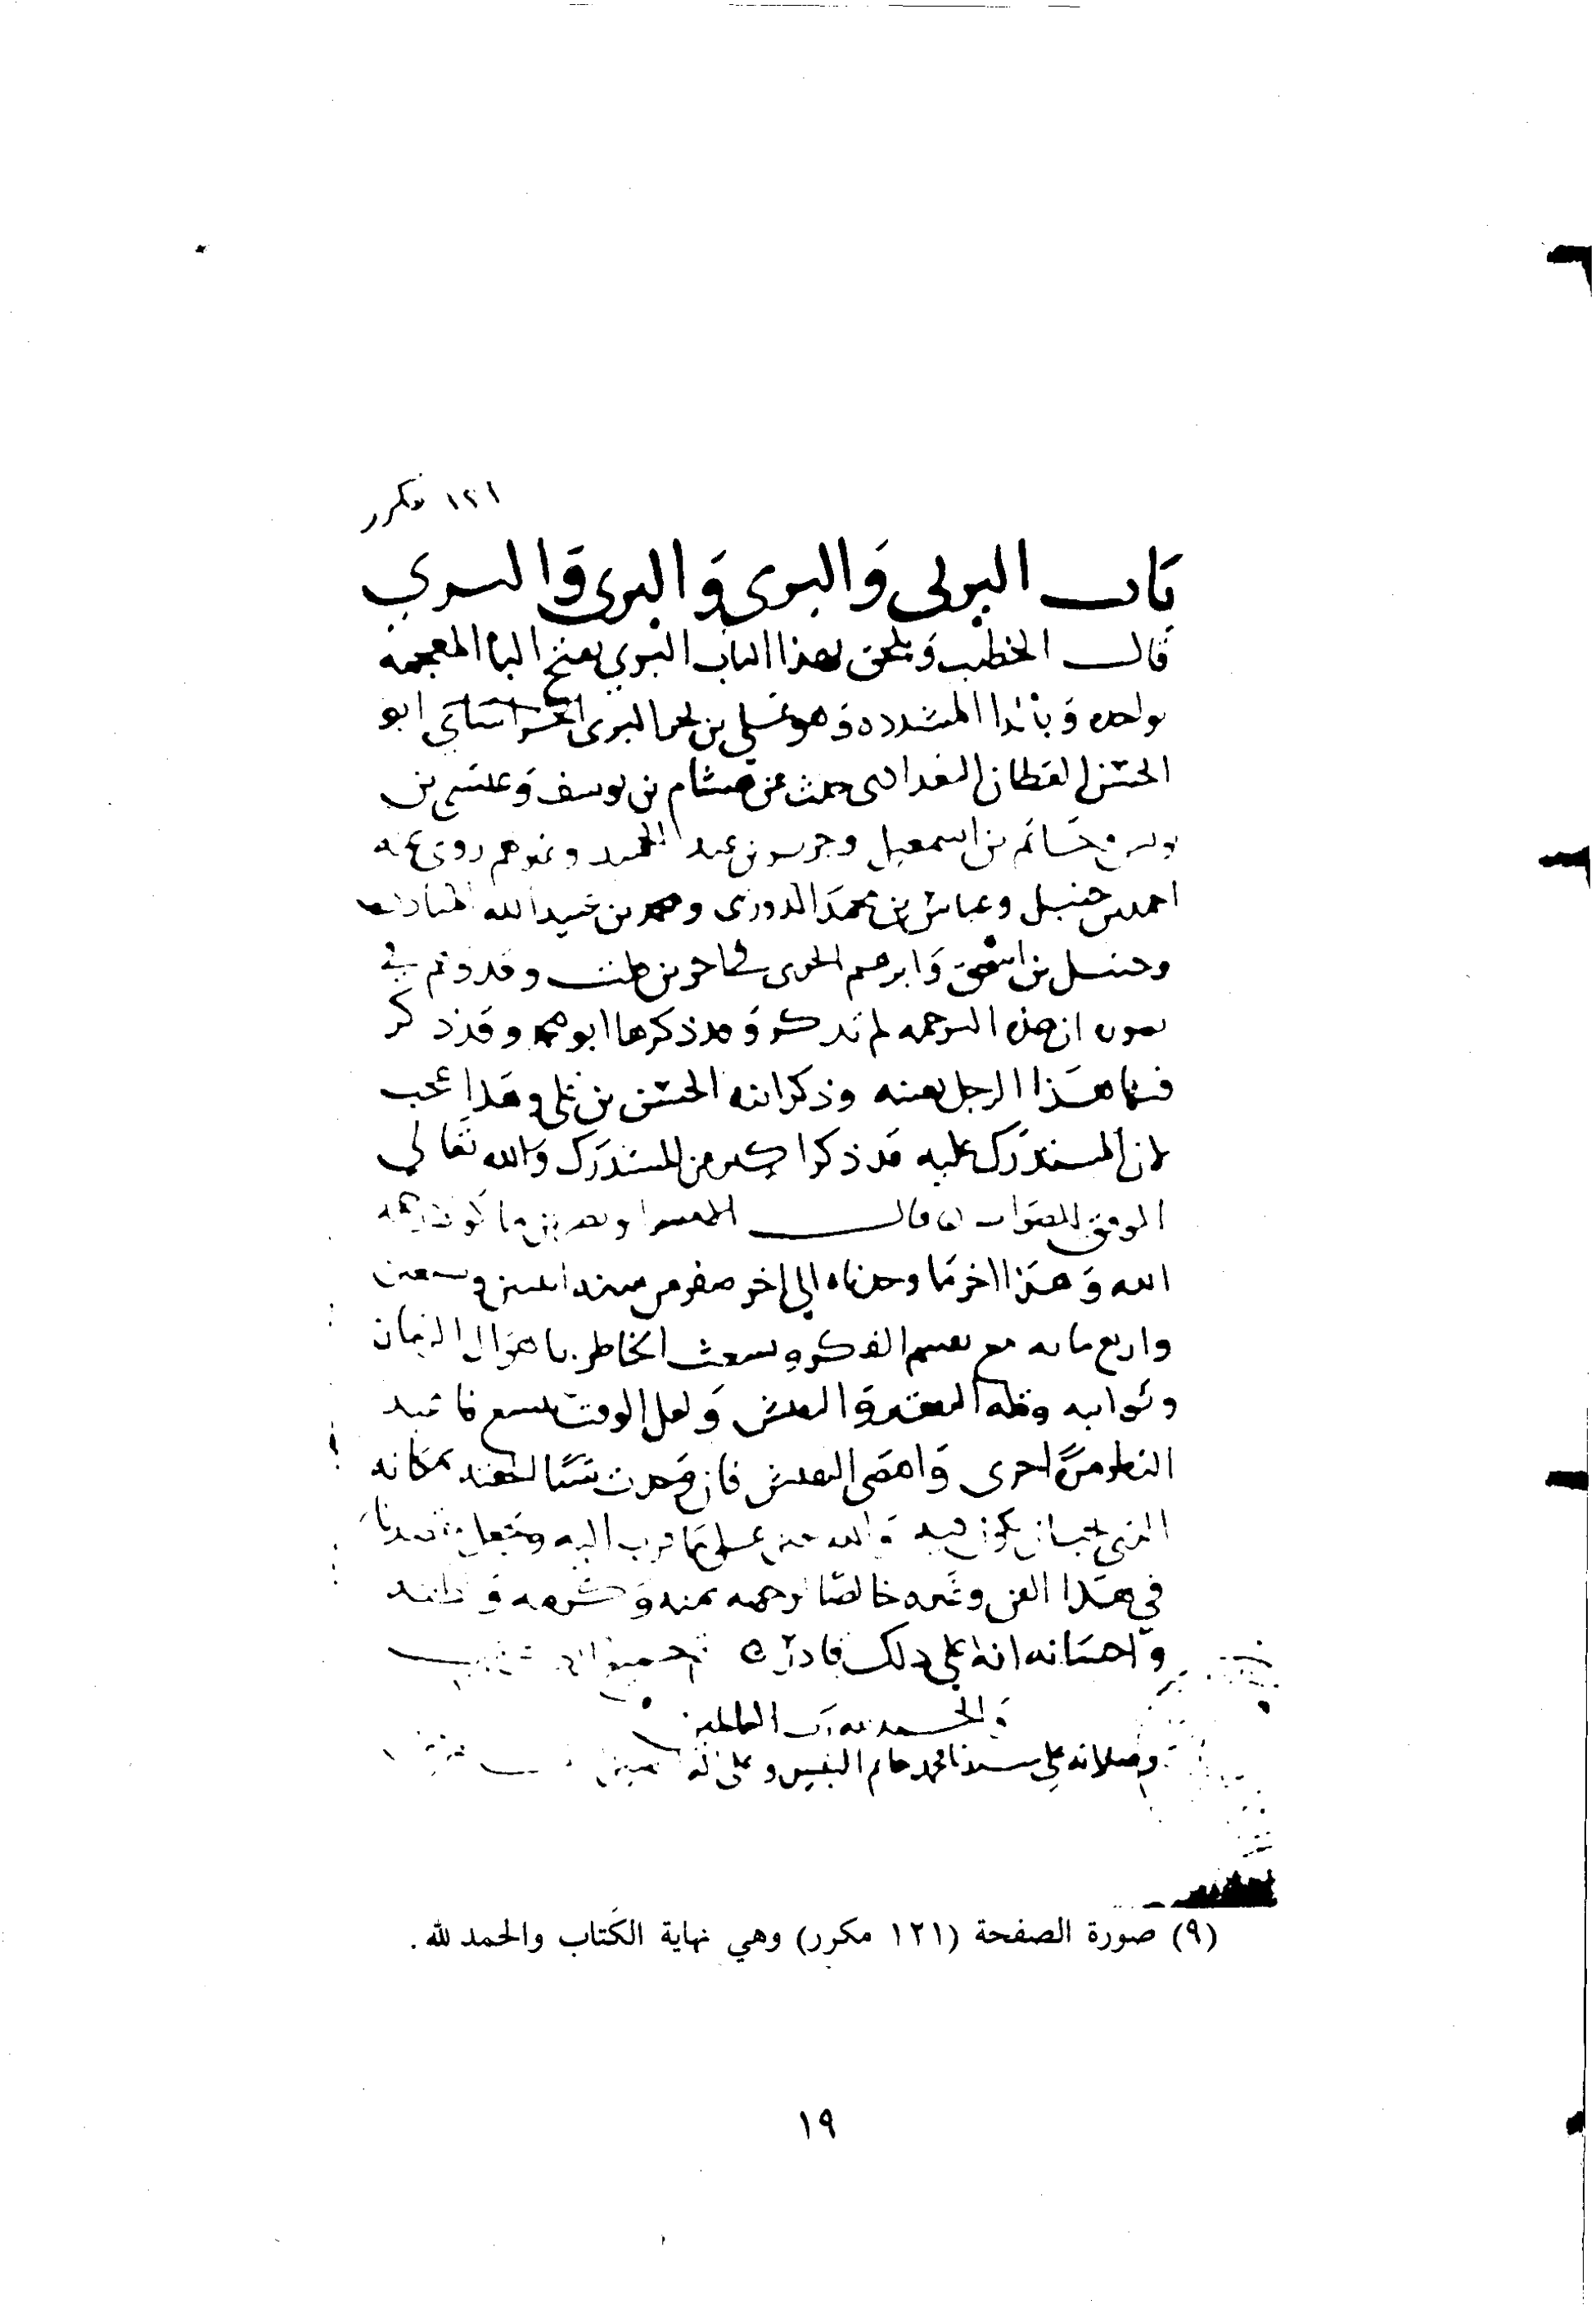 ١٢١ مكرر
باب اليزني والبري والبري والسري
قال الخطيب ويلحق بهذا الباب البري بفتح الباء المعجمة
بواحدة وبالرا المشددة وهو علي بن بحر البري ابو
الحسن القطان البغدادي حدث عن هشام بن يوسف وعيسى بن
يونس وحاتم بن اسمعيل وجرير بن عبد الحميد وغيرهم روى عنه
احمد بن حنبل وعباس بن محمد الدوري ومحمد بن عبيد الله المنادي
وحنبل بن اسحق وابرهيم الحربي في اخرين قلت وقد وهم في
ان هذه الترجمة لم تذكر وقد ذكرها ابو محمد وقد ذكر
فيها هذا الرجل بعينه وذكر ابنه الحسن بن علي وهذا عجب
لان المستدرك عليه قد ذكر اكثر من المستدرك والله تعالى
الموفق للصواب قال
الله وهذا اخر ما وجدناه الى اخر صفر من سنة وستين
واربع مائة مع تقسم الفكر وتشعث الخاطر باهوال الزمان
ونوايبه وقلة والتفتيش ولعل الوقت يتسع فاعيد
النظر مرة اخرى واهم التفتيش فان وجدت شيئا الحقته بمكانه
الذي يجب ان يكون فيه والله يعين على ما قرب اليه ويجعل
في هذا الفن وغيره خالصا لوجهه بمنه وكرمه
واحسانه انه على ذلك قادر
والحمد لله رب العالمين
وصلاته على سيدنا محمد خاتم النبيين وعلى آله
(٩) صورة الصفحة (١٢١ مكرر) وهي نهاية الكتاب والحمد لله.
١٩